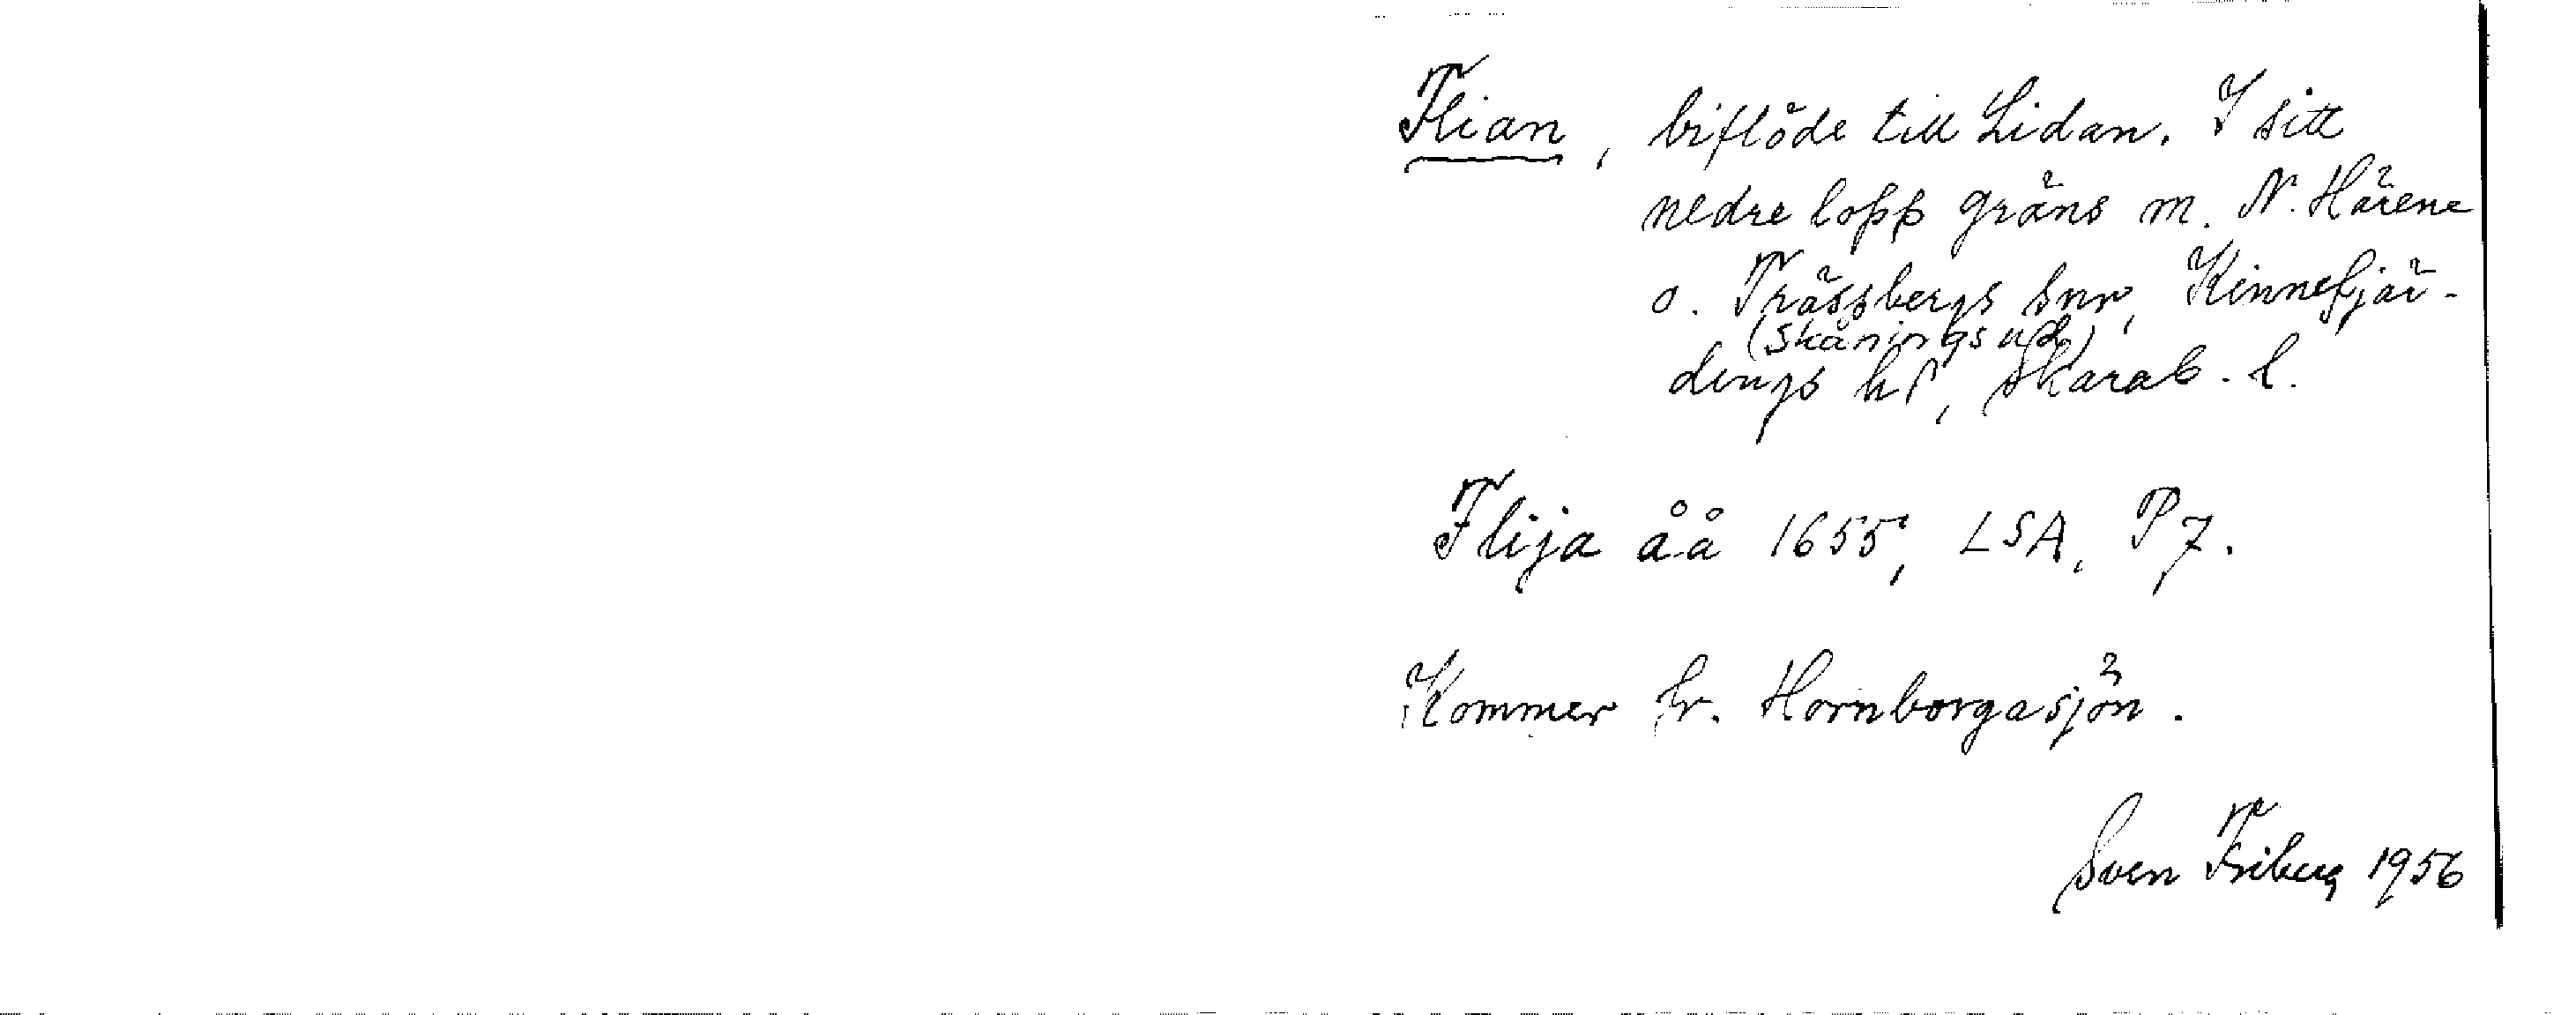 Flian, biflöde till Lidan. I sitt
nedre lopp gräns m. N. Härene
o. Trässbergs snr, Kinnefjär-
(Skånings hd)
dings hd, Skarab. l.
Flija åå 1655, LSA, P 7.
Kommer fr. Hornborgasjön.
Sven Friberg 1956